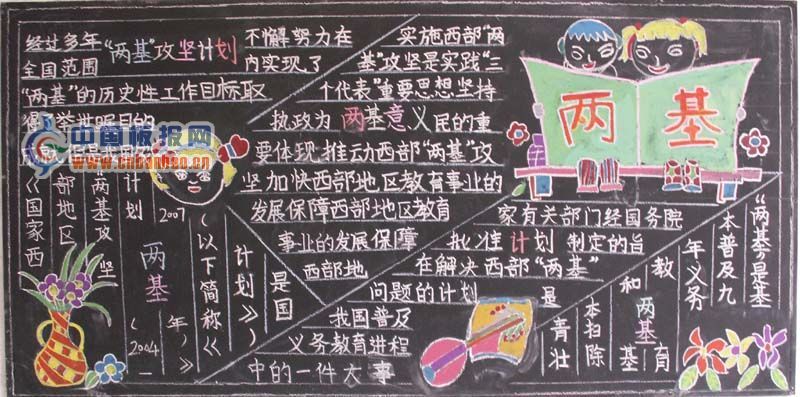 经过多年"两基"攻坚计划不懈努力在
全国范围内实现了
"两基"的历史性工作目标取
得举世瞩目的
《国家西
部地区
两基攻坚
计划
(2004—
2007
年)》
(以下简称《
计划》)
是国
两基
实施西部"两
基"攻坚是实践"三
个代表"重要思想坚持
执政为两基意义民的重
要体现推动西部"两基"攻
坚加快西部地区教育事业的
发展保障西部地区教育
事业的发展保障
西部地
家有关部门经国务院
批准计划制定的旨
在解决西部"两基"
问题的计划
我国普及
义务教育进程
中的一件大事
两基
"两基"是基
本普及九
年义务
教育
两基
和基
本扫除
青壮
是
中国板报网
www.cnbanbao.cn